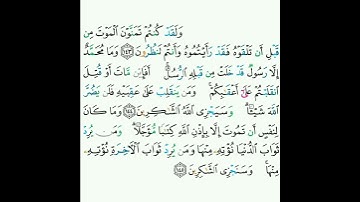 وَلَقَدْ كُنتُمْ تَمَنَّوْنَ ٱلْمَوْتَ مِن
قَبْلِ أَن تَلْقَوْهُ فَقَدْ رَأَيْتُمُوهُ وَأَنتُمْ تَنظُرُونَ ١٤٣ وَمَا مُحَمَّدٌ
إِلَّا رَسُولٌ قَدْ خَلَتْ مِن قَبْلِهِ ٱلرُّسُلُ ۚ أَفَإِي۟ن مَّاتَ أَوْ قُتِلَ
ٱنقَلَبْتُمْ عَلَىٰٓ أَعْقَٰبِكُمْ ۚ وَمَن يَنقَلِبْ عَلَىٰ عَقِبَيْهِ فَلَن يَضُرَّ
ٱللَّهَ شَيْـًٔا ۗ وَسَيَجْزِى ٱللَّهُ ٱلشَّٰكِرِينَ ١٤٤ وَمَا كَانَ
لِنَفْسٍ أَن تَمُوتَ إِلَّا بِإِذْنِ ٱللَّهِ كِتَٰبًا مُّؤَجَّلًا ۗ وَمَن يُرِدْ
ثَوَابَ ٱلدُّنْيَا نُؤْتِهِۦ مِنْهَا وَمَن يُرِدْ ثَوَابَ ٱلْءَاخِرَةِ نُؤْتِهِۦ
مِنْهَا ۚ وَسَنَجْزِى ٱلشَّٰكِرِينَ ١٤٥